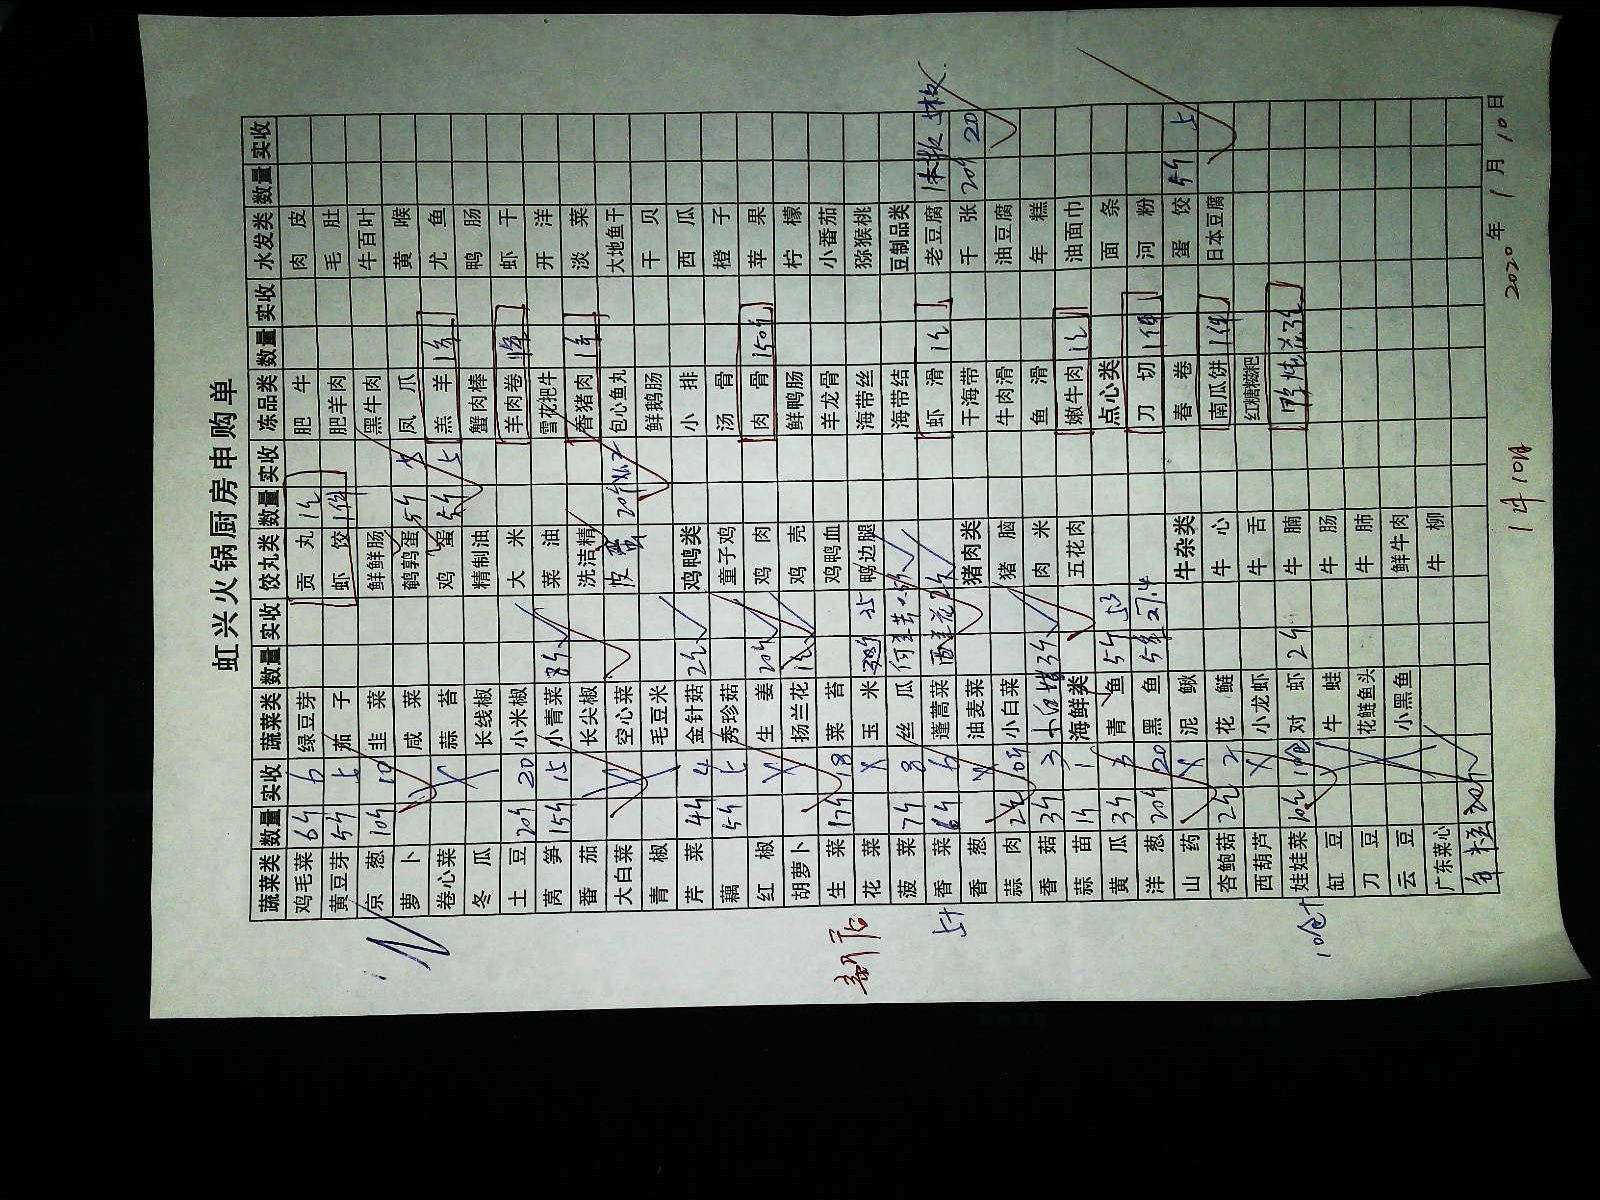 虹兴火锅厨房申购单
蔬菜类 数量 实收 蔬菜类 数量 实收 饺丸类 数量 实收 冻品类 数量 实收 水发类 数量 实收
鸡毛菜 6斤 6 绿豆芽 贡丸 1包 肥牛 肉皮
黄豆芽 5斤 5 茄子 虾饺 1件 肥羊肉 毛肚
京葱 10斤 10 韭菜 鲜鲜肠 黑牛肉 牛百叶
萝卜 咸菜 鹌鹑蛋 5斤 凤爪 黄喉
卷心菜 蒜苔 鸡蛋 5斤 羔羊 1件 尤鱼
冬瓜 长线椒 精制油 蟹肉棒 鸭肠
土豆 20斤 20 小米椒 大米 羊肉卷 虾干
莴笋 15斤 15 小青菜 8斤 菜油 雪花把牛 开洋
番茄 长尖椒 洗洁精 香猪肉 1件 淡菜
大白菜 空心菜 20斤 包心鱼丸 大地鱼干
青椒 毛豆米 鲜鹅肠 干贝
芹菜 4斤 4 金针菇 2包 鸡鸭类 小排 西瓜
藕 5斤 秀珍菇 童子鸡 汤骨 橙子
红椒 生姜 20斤 鸡肉 肉骨 150斤 苹果
胡萝卜 扬兰花 鸡壳 鲜鸭肠 柠檬
生菜 17斤 18 菜苔 鸡鸭血 羊龙骨 小番茄
花菜 玉米 35 鸭边腿 海带丝 猕猴桃
菠菜 7斤 8 丝瓜 海带结 豆制品类
香菜 6斤 6 蓬蒿菜 西兰花 虾滑 1包 老豆腐
香葱 油麦菜 猪肉类 干海带 千张 20斤 20
蒜肉 10斤 小白菜 猪脑 牛肉滑 油豆腐
香菇 3斤 3 肉米 鱼滑 年糕
蒜苗 1斤 1 海鲜类 五花肉 嫩牛肉 1包 油面巾
黄瓜 3斤 3 青鱼 5斤 点心类 面条
洋葱 20斤 20 黑鱼 27.4 刀切 1件 河粉
山药 泥鳅 牛杂类 春卷 蛋饺 5斤 5
杏鲍菇 2包 2 花鲢 牛心 南瓜饼 1件 日本豆腐
西葫芦 小龙虾 牛舌 红糖糍粑
娃娃菜 对虾 2斤 牛腩
缸豆 牛蛙 牛肠
刀豆 花鲢鱼头 牛肺
云豆 小黑鱼 鲜牛肉
广东菜心 牛柳
年糕 20斤
新店
1月10日
2020年1月10日